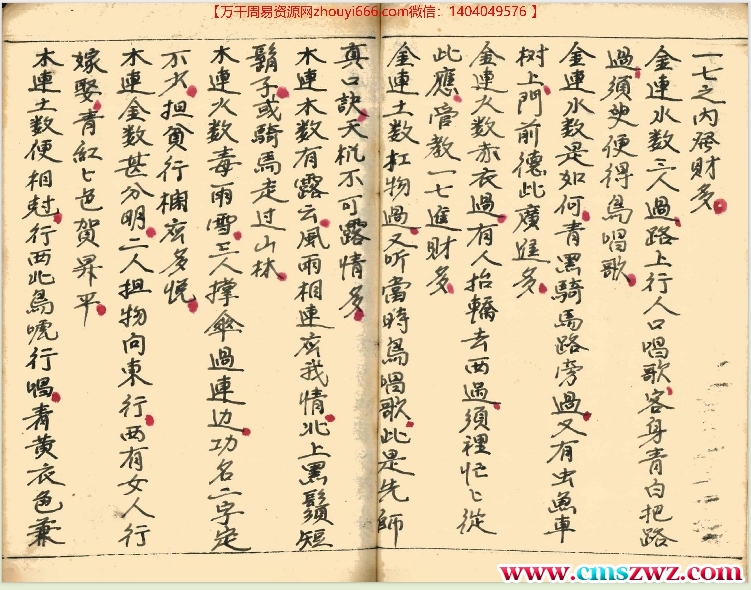 【万千周易资源网zhouyi666.com微信：1404049576 】
一七之内發財多
金連水数三人過路上行人口唱歌客身青白把路
過須臾便得鳥唱歌
金連水数是如何青黑騎馬路旁過又有虫魚車
树上門前德此廣進多
金連火数赤衣過有人抬轎去西過須裡忙匕從
此應管教一七進財多
金連土数扛物過又听當時鳥唱歌此是先師
真口訣天机不可露情多
木連木数有露云風雨相連齐我情北上黑鬚短
鬍子或騎馬走过山林
木連火数毒雨雪三人撑傘過連边功名二字定
不少担貧行欄齐多悦
木連金数甚分明二人担物向東行西有女人行
嫁娶青紅匕色賀昇平
木連土数便相尅行西北鳥唬行唱青黄衣色兼
www.cmszwz.com